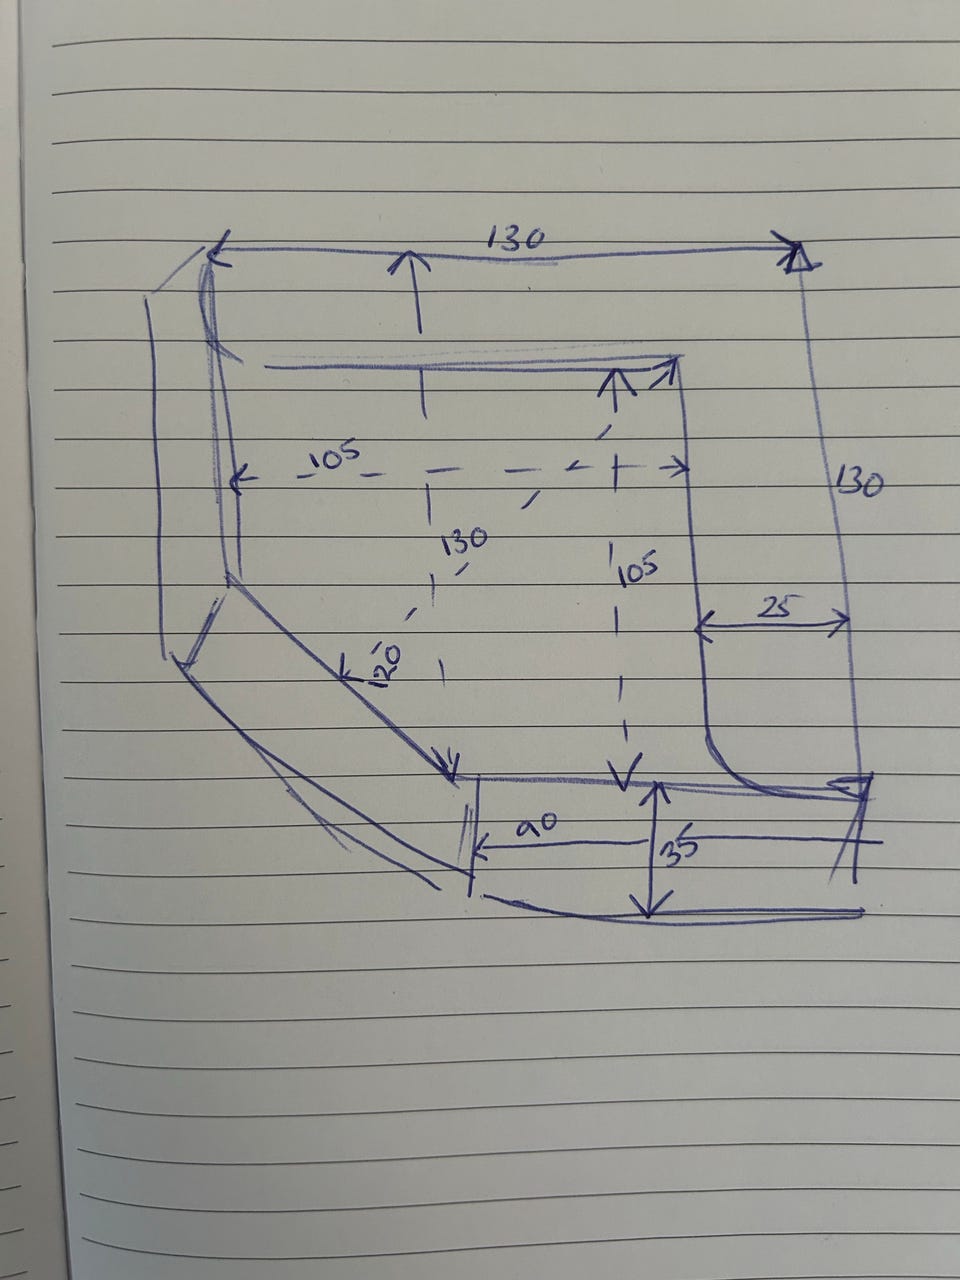 130
105
130
130
105
25
120
90
35